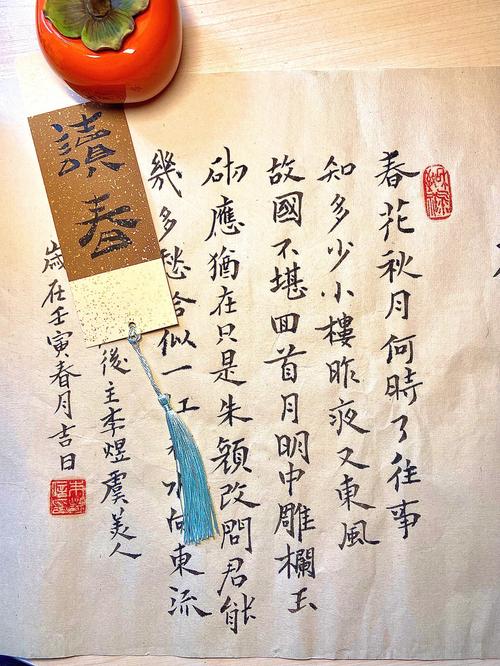 春花秋月何時了往事
知多少小樓昨夜又東風
故國不堪回首月明中雕欄玉
砌應猶在只是朱顏改問君能
幾多愁似一向東流
後主李煜虞美人
歲在壬寅春月吉日
讀春